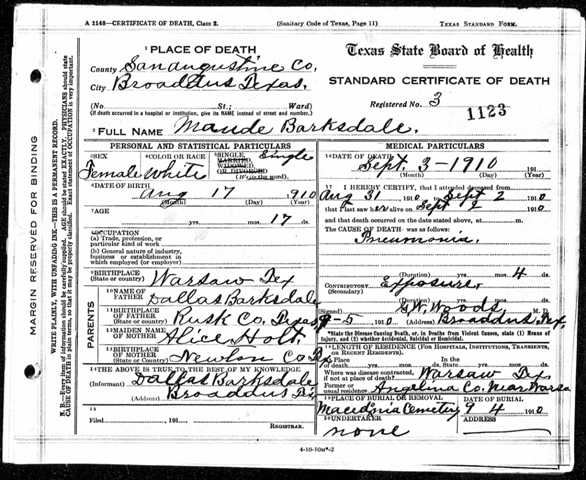 A 1148—CERTIFICATE OF DEATH, Class 2. (Sanitary Code of Texas, Page 11) TEXAS STANDARD FORM.
MARGIN RESERVED FOR BINDING
WRITE PLAINLY, WITH UNFADING INK—THIS IS A PERMANENT RECORD.
1 PLACE OF DEATH
County San Augustine Co.
City Broaddus Texas.
(No St.; Ward)
(If death occurred in a hospital or institution, give its NAME instead of street and number.)
Texas State Board of Health
STANDARD CERTIFICATE OF DEATH
Registered No. 3
1123
2 FULL NAME Maude Barksdale.
PERSONAL AND STATISTICAL PARTICULARS
3 SEX
Female
4 COLOR OR RACE
White
5 SINGLE, MARRIED, WIDOWED, OR DIVORCED
(Write the word.)
Single
6 DATE OF BIRTH
Aug 17 1910
(Month) (Day) (Year)
7 AGE
yrs. mos. 17 ds.
8 OCCUPATION
(a) Trade, profession, or
particular kind of work
(b) General nature of industry,
business or establishment in
which employed (or employer)
9 BIRTHPLACE
(State or country)
Warsaw Tex
PARENTS
10 NAME OF
FATHER
Dallas Barksdale
11 BIRTHPLACE
OF FATHER
(State or country)
Rusk Co. Texas
12 MAIDEN NAME
OF MOTHER
Alice Holt.
13 BIRTHPLACE
OF MOTHER
(State or country)
Newton Co Tex
14 THE ABOVE IS TRUE TO THE BEST OF MY KNOWLEDGE
(Informant) Dallas Barksdale
(Address) Broaddus Tex
15
Filed 191
REGISTRAR.
MEDICAL PARTICULARS
16 DATE OF DEATH
Sept. 3-1910 191
(Month) (Day) (Year)
17 I HEREBY CERTIFY, that I attended deceased from
Aug 31 1910 Sept 2 1910
that I last saw alive on Sept 2 1910
and that death occurred on the date stated above, at m.
The CAUSE OF DEATH was as follows:
Pneumonia.
(Duration) yrs. mos. 4 ds.
CONTRIBUTORY Exposure
(Secondary)
(Duration) yrs. mos. ds.
(Signed) G.W. Woods M. D.
9-5 1910 (Address) Broaddus Tex,
*State the Disease Causing Death, or, in Deaths from Violent Causes, state (1) Means of
Injury, and (2) whether Accidental, Suicidal or Homicidal.
18 LENGTH OF RESIDENCE (FOR HOSPITALS, INSTITUTIONS, TRANSIENTS,
OR RECENT RESIDENTS).
At place In the
of death yrs. mos. ds. State yrs. mos. ds.
Where was disease contracted,
if not at place of death? Warsaw Tex.
Former or
usual residence Angelina Co. Near Warsa
19 PLACE OF BURIAL OR REMOVAL
Macedonia Cemetery
DATE OF BURIAL
9 4 1910
20 UNDERTAKER
none
ADDRESS
4-10-10m*-2